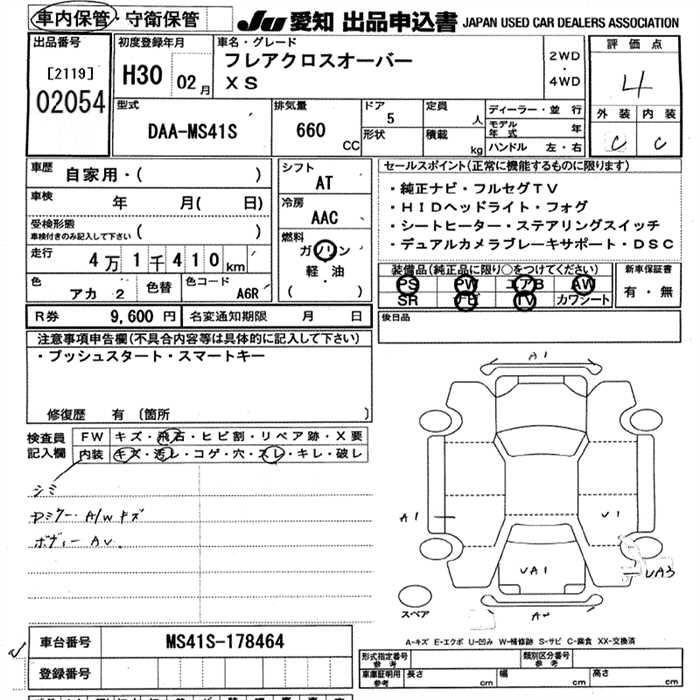 車内保管・守衛保管
JU 愛知 出品申込書 JAPAN USED CAR DEALERS ASSOCIATION
出品番号
[2119]
02054
初度登録年月
H30 02月
車名・グレード
フレアクロスオーバー
XS
2WD
・
4WD
評価点
4
外装 内装
C C
型式
DAA-MS41S
排気量
660 CC
ドア
5
形状
定員
人
積載
kg
ディーラー・並行
モデル年式 年
ハンドル 左・右
車歴
自家用・( )
車検
年 月( 日)
受検形態
車検付きのみ記入して下さい ( )
走行
4万1千410km
色
アカ 2
色替
色コード
A6R
シフト
AT
冷房
AAC
燃料
ガソリン
軽・油
( )
セールスポイント(正常に機能するものに限ります)
・純正ナビ・フルセグTV
・HIDヘッドライト・フォグ
・シートヒーター・ステアリングスイッチ
・デュアルカメラブレーキサポート・DSC
装備品(純正品に限り○をつけてください)
PS PW エアB AW
SR ナビ TV カワシート
新車保証書
有・無
R券 9,600円
名変通知期限 月 日
後日品
注意事項申告欄(不具合内容等は具体的に記入して下さい)
・プッシュスタート・スマートキー
修復歴 有 (箇所 )
検査員
記入欄
FW キズ・飛石・ヒビ割・リペア跡・X要
内装 キズ・汚レ・コゲ・穴・スレ・キレ・破レ
シミ
A/W キズ
ボディー AU.
A1
A1
U1
UA1
UA3
スペア
A-キズ E-エクボ U-凹み W-補修跡 S-サビ C-腐食 XX-交換済
車台番号 MS41S-178464
登録番号
形式指定番号
参考
類別区分番号
参考
車庫証明用
参考
長さ cm 幅 cm 高さ cm